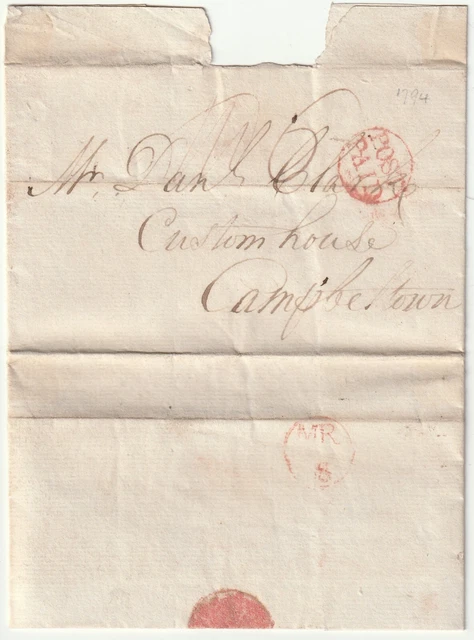 1794
Mr. Danl
POST PAID
Custom house
Campbeltown
MR
8